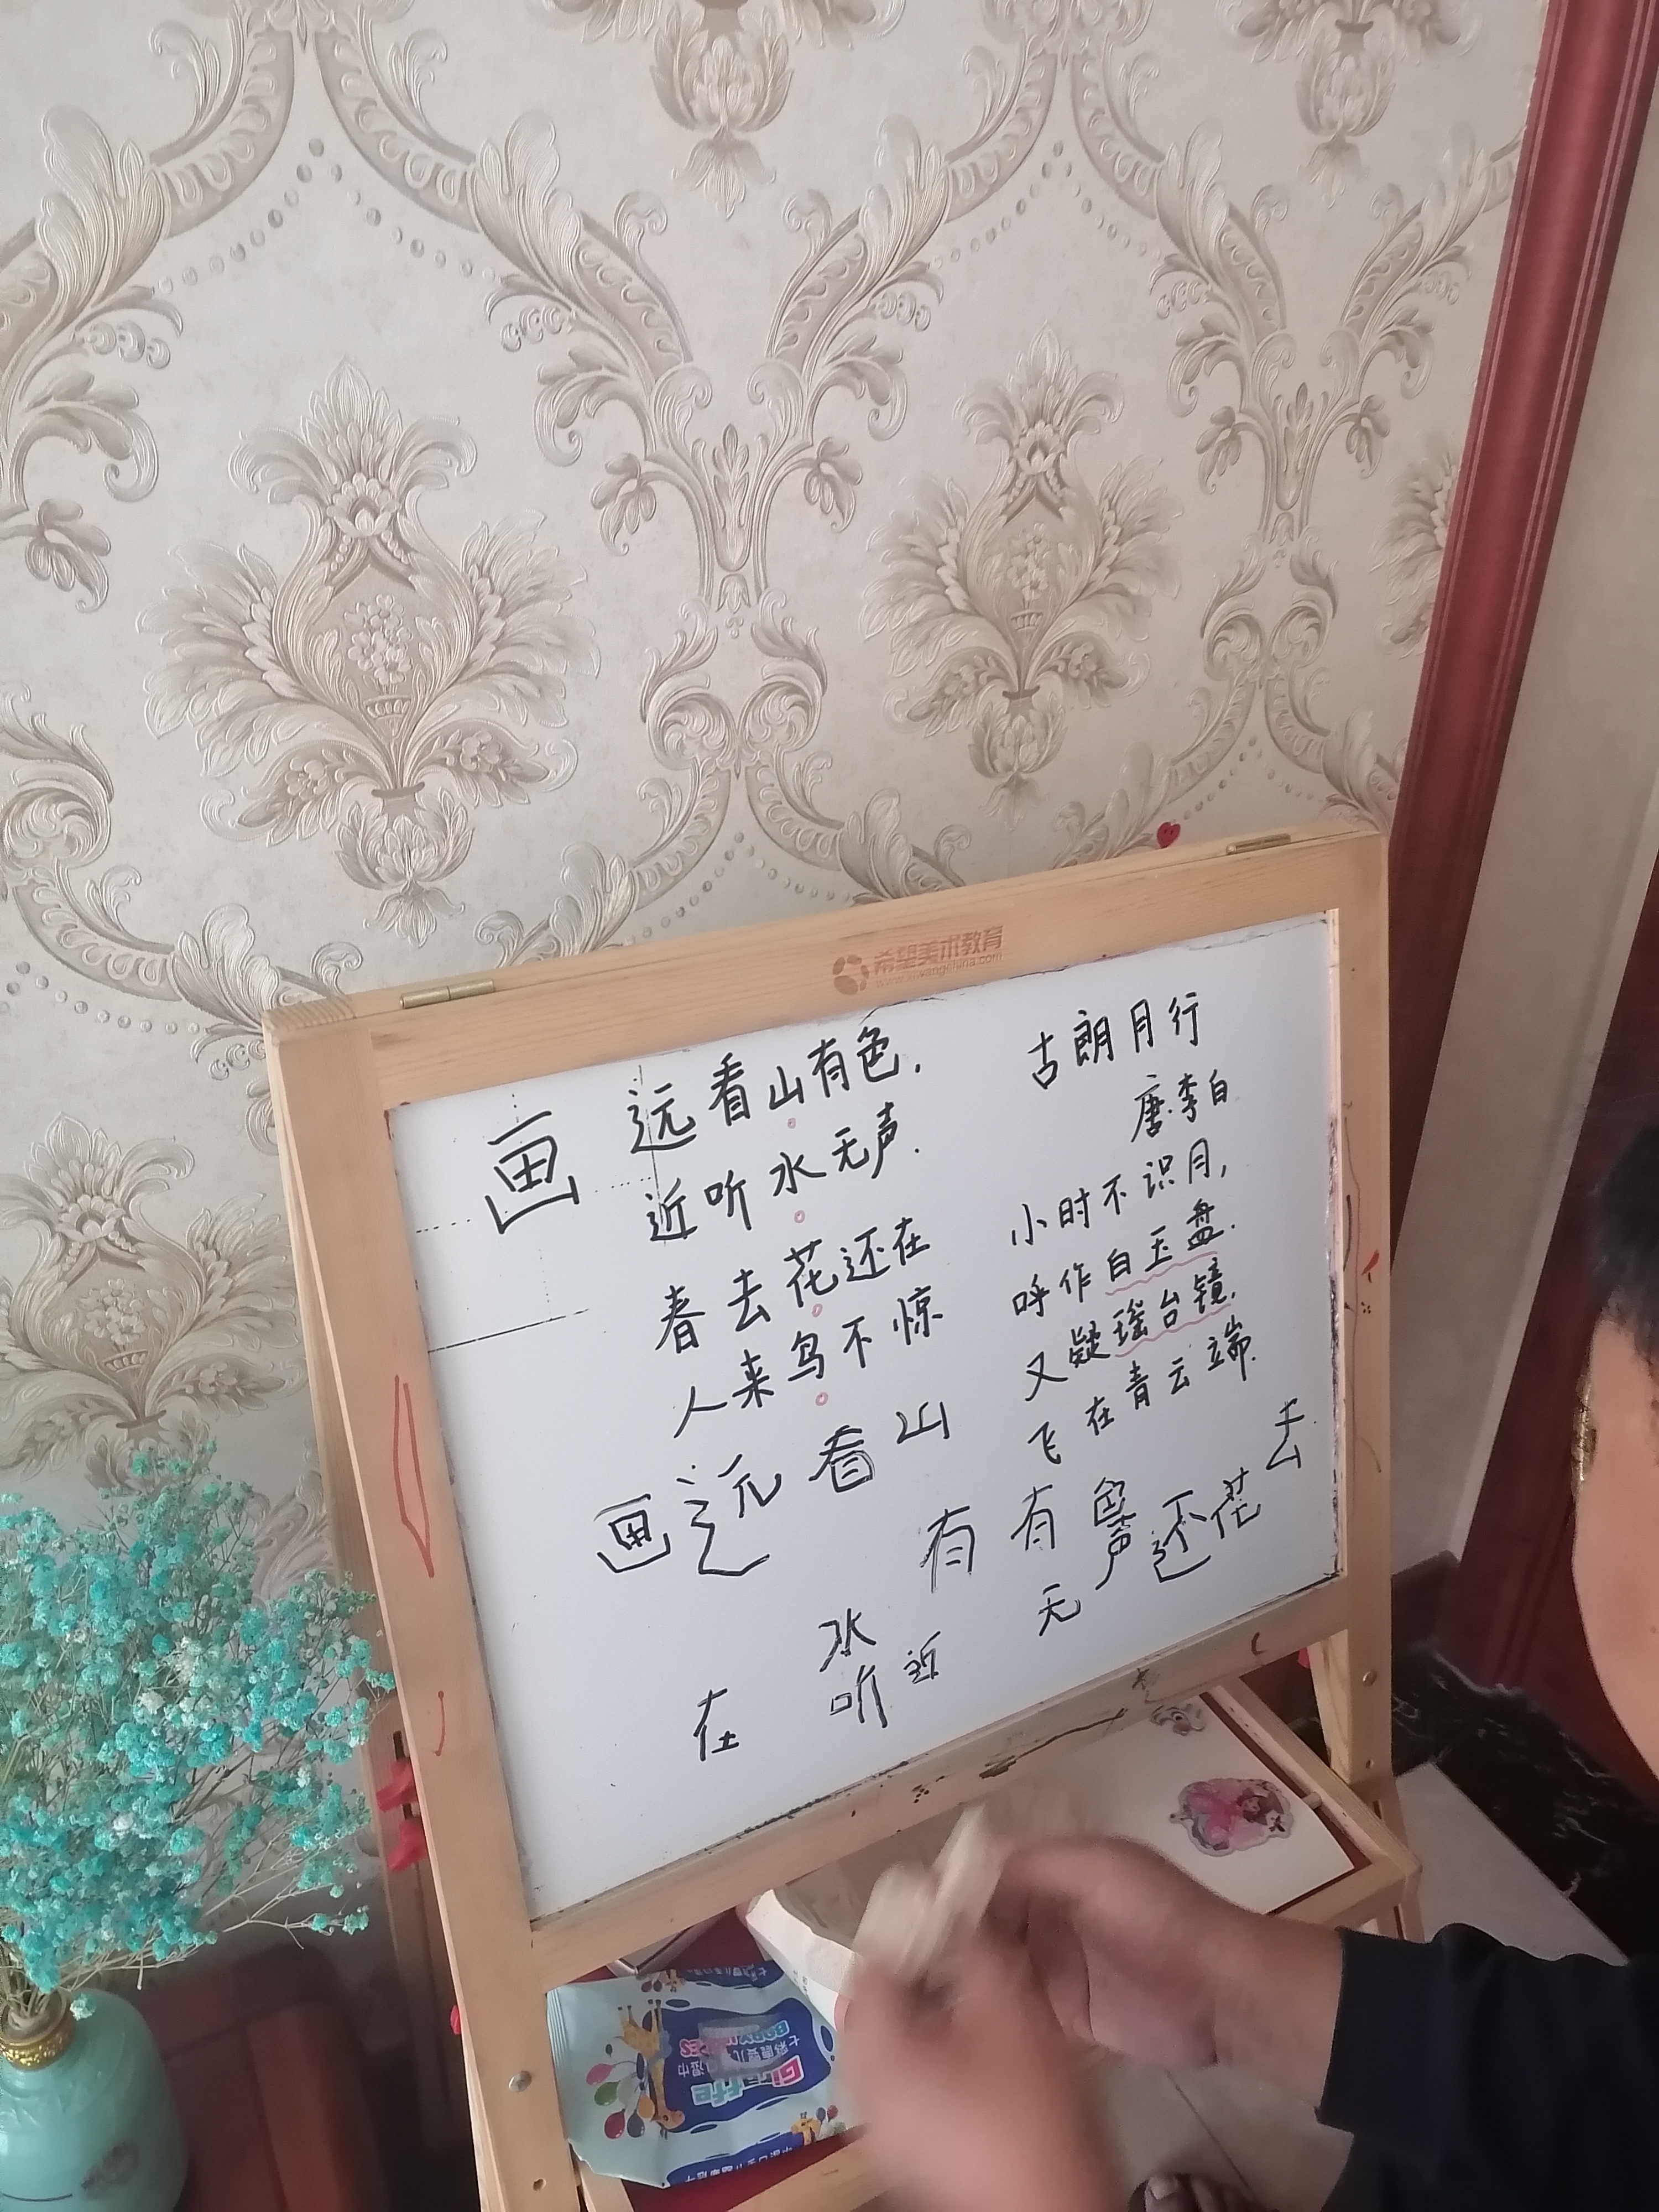 希望美术教育
画
远看山有色.
近听水无声.
春去花还在
人来鸟不惊
古朗月行
唐.李白
小时不识月,
呼作白玉盘.
又疑瑶台镜.
飞在青云端.
画远看山
有有色
声还花去
无
水
听近
在